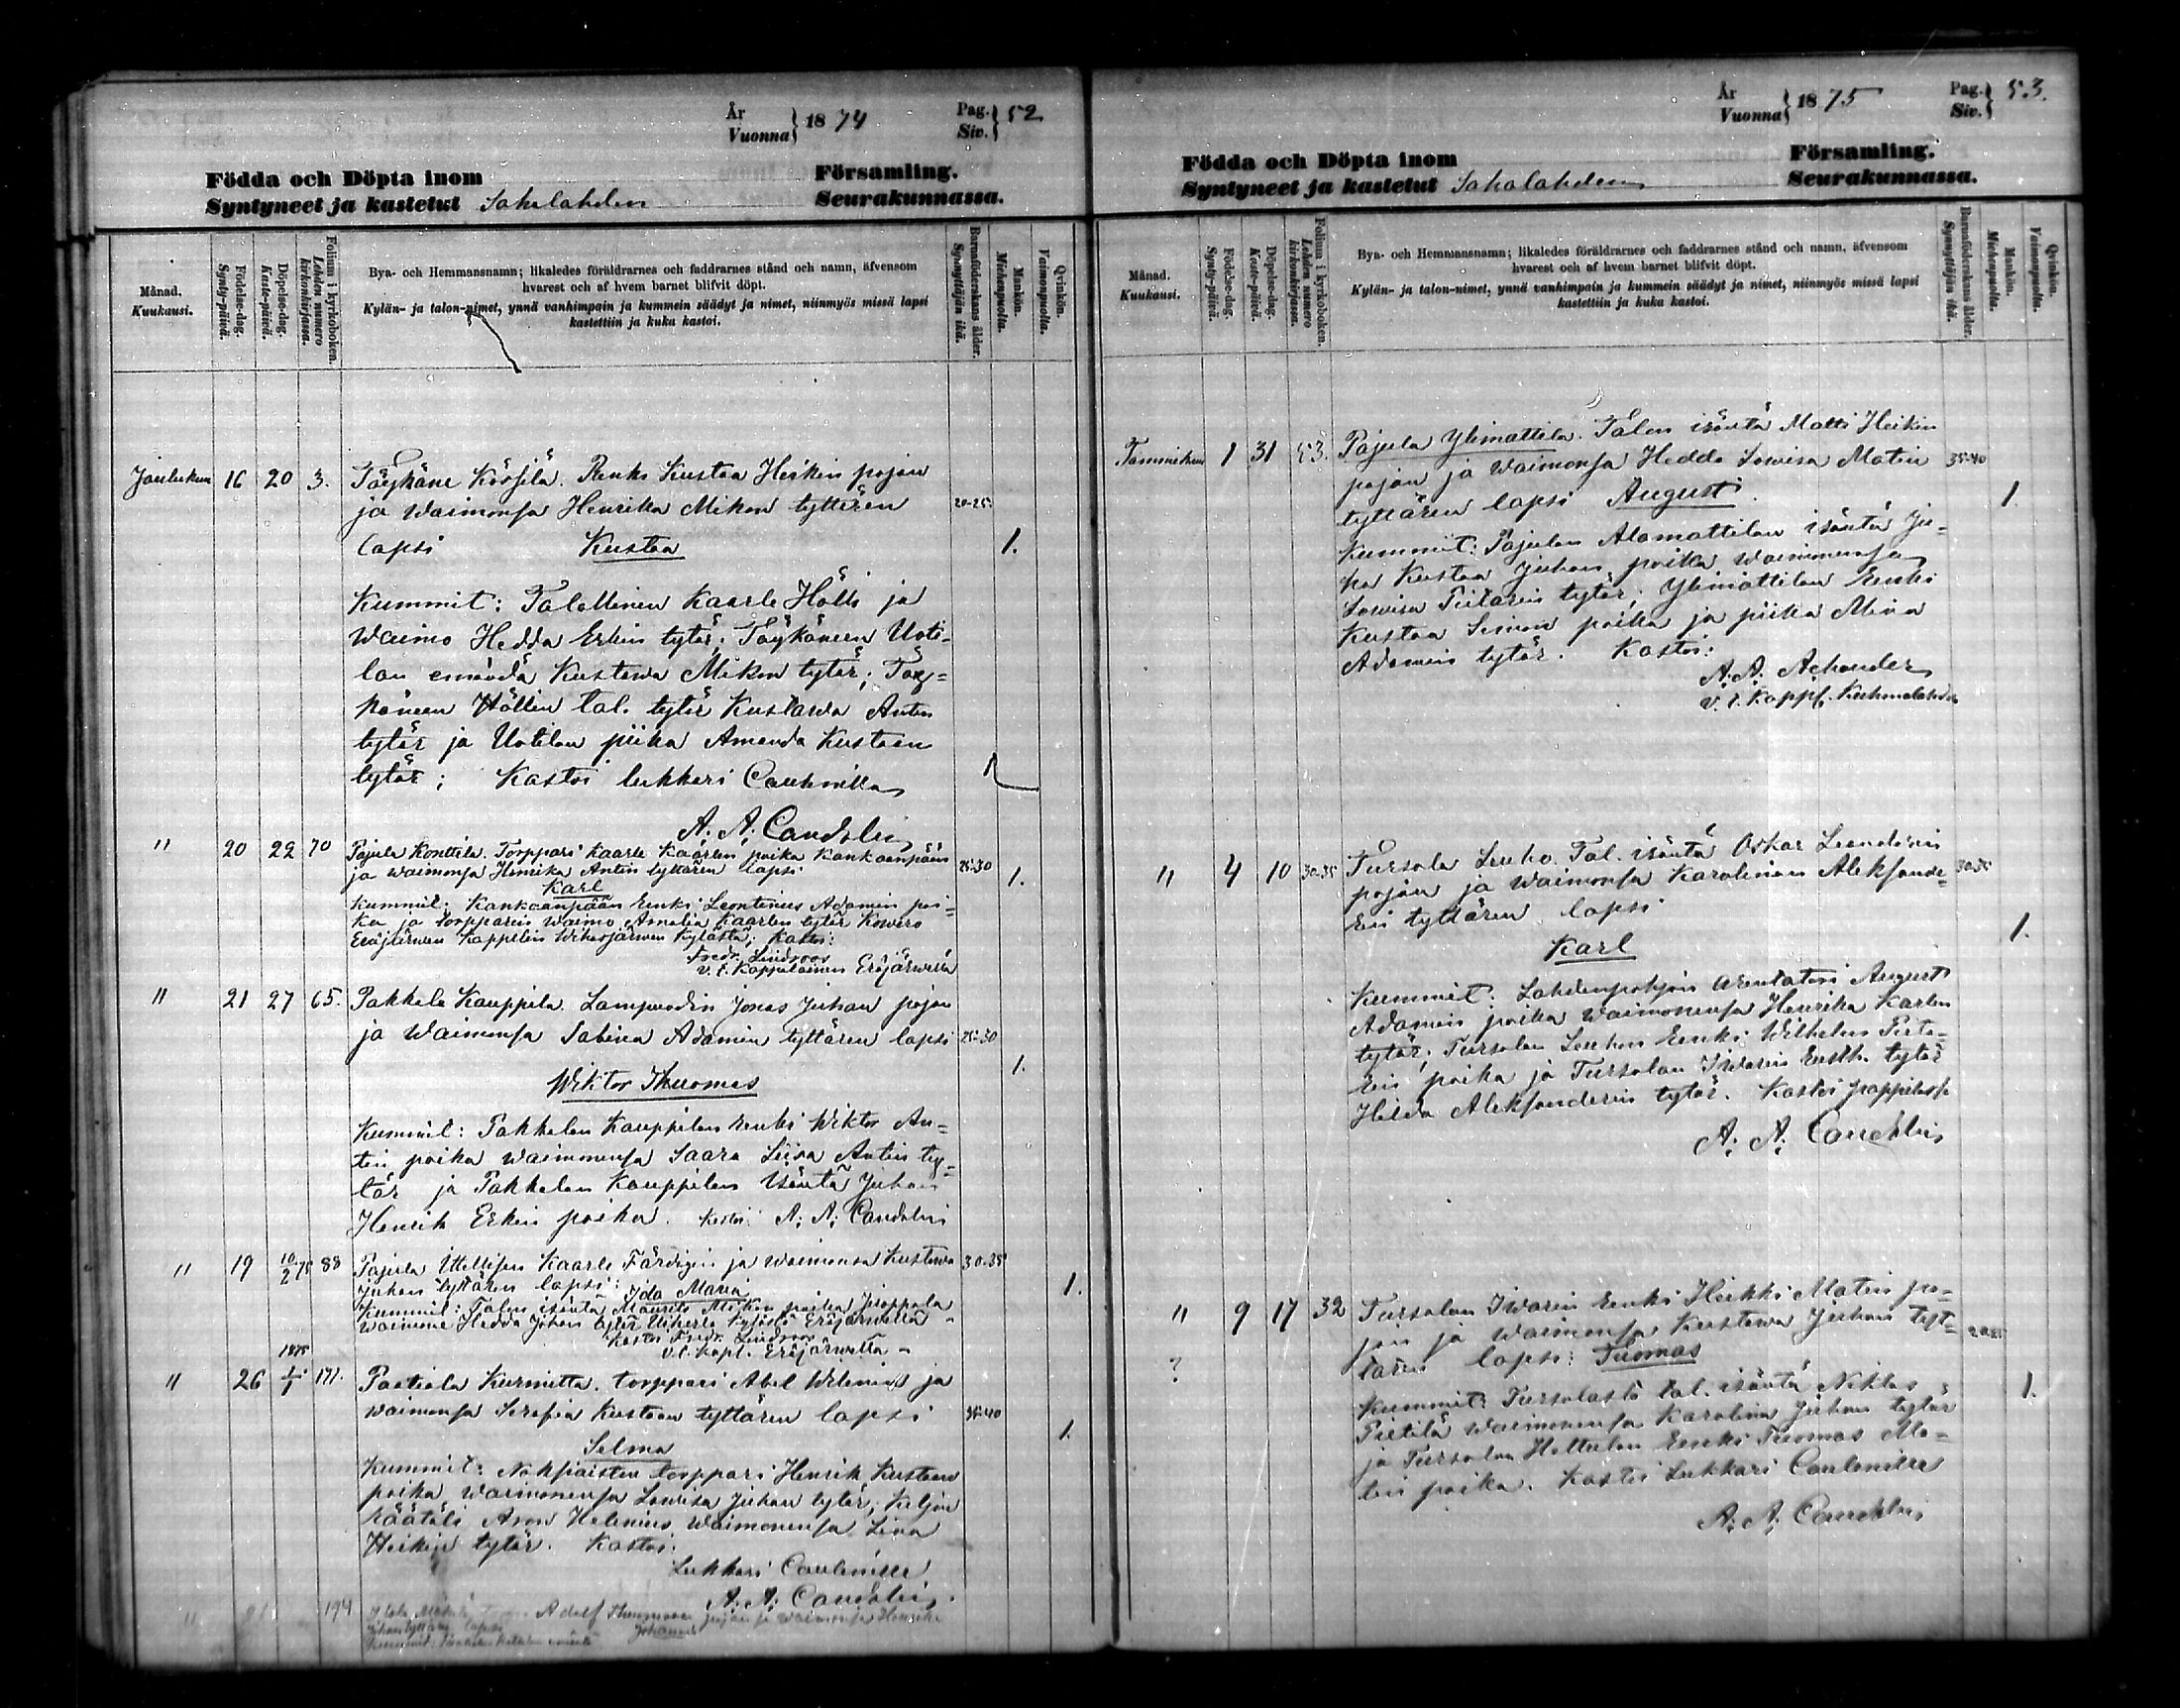 År
Vuonna } 18 74
Pag.
Siv. } 52
Födda och Döpta inom Församling.
Syntyneet ja kastetut Sahalahden Seurakunnassa.
Månad.
Kuukausi.
Födelse-dag.
Synty-päivä.
Döpelse-dag.
Kaste-päivä.
Folium i kyrkoboken.
Lehden numero kirkonkirjassa.
Bya- och Hemmansnamn; likaledes föräldrarnes och faddrarnes stånd och namn, äfvensom
hvarest och af hvem barnet blifvit döpt.
Kylän- ja talon-nimet, ynnä vanhimpain ja kummein säädyt ja nimet, niinmyös missä lapsi
kastettiin ja kuka kastoi.
Barnaföderskans ålder.
Synnyttäjän ikä.
Mankön.
Miehenpuolta.
Qvinkön.
Vaimonpuolta.
Joulukuu 16 20 3. Renki Kustaa Heikin pojan
ja waimonsa Henrika Mikon tyttären 20-25
lapsi Kustaa 1.
Kummit: Talollinen Kaarle Hölli ja
waimo Hedda Erkin tytär; Töykäneen Uoti-
lan emändä Kustawa Mikon tytär; Töy-
käneen Höllin tal. tytär Kustawa Antin
tytär ja Uotilan piika Amanda Kustaan
tytär; Kastoi lukkari Caulenille
A. A. Candolin
" 20 22 70 Pajula Konttila. Torppari Kaarle Kaarlen poika Kankaanpään
ja waimonsa Henrika Antin tyttären lapsi 25-30 1.
Karl
Kummit: Kankaanpään Renki Leontinus Adamin poi-
ka ja torpparin waimo Amalia Kaarlen tytär Kowero
Eräjärwen Kappelin Wihasjärwen Kylästä; Kastoi:
Fredr. Lindroos
v. t. Kappalainen Eräjärwellä
" 21 27 65. Pakkala Kauppila. Lampuodin Jonas Juhan pojan
ja waimonsa Sabina Adamin tyttären lapsi 25-30
1.
Wiktor Thuomas
Kummit: Pakkalan Kauppilan renki Wiktor An-
tin poika waimonensa Saara Liisa Antin ty-
tär ja Pakkalan Kauppilan Isäntä Juhan
Henrik Erkin poika. Kastoi: A. A. Candolin
" 19 10/2 75 88 Pajula Kaarle Färdigin ja waimonsa Kustawa 30-35
Juhan tyttären lapsi: Ida Maria 1.
Kummit: Talon isäntä Maurits Mikon poika
waimone Hedda Juhan tytär Eräjärwellä
Kastoi Fredr. Lindroos
v. t. Kapl. Eräjärwellä
1875
" 26 1/1 171. Pactiala Kurnitta. torppari Abel Wilenius ja
waimonsa Serafia Kustaan tyttären lapsi 35-40
1.
Selma
Kummit: torppari Henrik Kustaan
poika waimonensa Lowisa Juhan tytär; Keljan
räätäli Aron Helenius waimonensa Liva
Heikin tytär. Kastoi:
Lukkari Caulenille
A. A. Candolin
" 194 Adolf pojan ja waimonsa Henrika
Juhan tyttären lapsi Johannes
Kummit:
År
Vuonna } 18 75
Pag.
Siv. } 53.
Födda och Döpta inom Församling.
Syntyneet ja kastetut Sahalahden Seurakunnassa.
Månad.
Kuukausi.
Födelse-dag.
Synty-päivä.
Döpelse-dag.
Kaste-päivä.
Folium i kyrkoboken.
Lehden numero kirkonkirjassa.
Bya- och Hemmansnamn; likaledes föräldrarnes och faddrarnes stånd och namn, äfvensom
hvarest och af hvem barnet blifvit döpt.
Kylän- ja talon-nimet, ynnä vanhimpain ja kummein säädyt ja nimet, niinmyös missä lapsi
kastettiin ja kuka kastoi.
Barnaföderskans ålder.
Synnyttäjän ikä.
Mankön.
Miehenpuolta.
Qvinkön.
Vaimonpuolta.
Tammikuu 1 31 53. Pajula Ylimattila. Talon isäntä Matti Heikin
pojan ja waimonsa Hedda Lowisa Matin 35-40
tyttären lapsi August. 1.
Kummit: Pajulan Alamattilan isäntä Ju-
ha Kustaa Juhan poika waimonensa
Lowisa Pietarin tytär; Ylimattilan Renki
Kustaa Simon poika ja piika Mina
Adamin tytär. Kastoi:
A. A. Achander
v. t. Kappl. Kuhmalahden
" 4 10 30-35 Tursola Leuho. Tal. isäntä Oskar Leanderin 30-35
pojan ja waimonsa Karolinan Aleksande-
rin tyttären lapsi
1.
Karl
Kummit: Lahdenpohjan arentatori August
Adamin poika waimonensa Henrika Karlen
tytär; Tursolan Leuhon Renki Wilhelm Pieta-
rin poika ja Tursolan Iwarin tytär
Hilda Aleksanderin tytär. Kastoi pappilassa
A. A. Candolin
" 9 17 32 Tursolan Iwarin Renki Heikki Matin po-
jan ja waimonsa Kustawa Juhan tyt-
? tären lapsi: Tuomas
1.
Kummit: Tursolasta tal. isäntä Niklas
Pietilä waimonensa Karolina Juhan tytär
ja Tursolan Hettulan Renki Tuomas Ma-
tin poika. Kastoi Lukkari Caulenille
A. A. Candolin